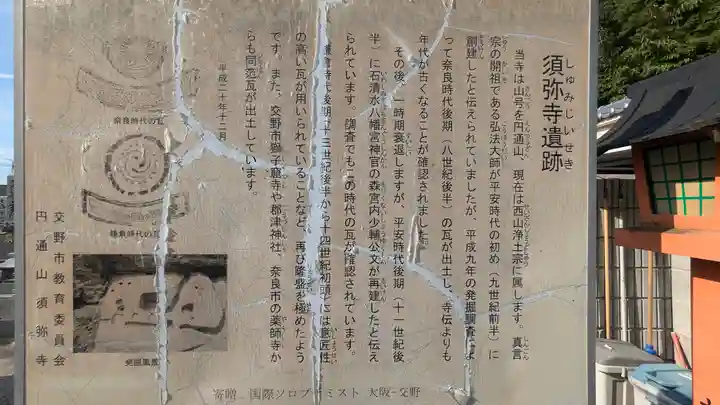 須弥寺遺跡
しゅみじいせき
当寺は山号を円通山、現在は西山浄土宗に属します。真言
宗の開祖である弘法大師が平安時代の初め（九世紀前半）に
創建したと伝えられていましたが、平成九年の発掘調査によ
って奈良時代後期（八世紀後半）の瓦が出土し、寺伝よりも
年代が古くなることが確認されました。
その後、一時期衰退しますが、平安時代後期（十一世紀後
半）に石清水八幡宮神官の森宮内少輔公文が再建したと伝え
られています。調査でもこの時代の瓦が確認されています。
鎌倉時代後期（十三世紀後半から十四世紀初頭）には意匠性
の高い瓦が用いられていることなど、再び隆盛を極めたよう
です。また、交野市獅子窟寺や郡津神社、奈良市の薬師寺か
らも同笵瓦が出土しています。
平成二十年十二月
奈良時代の瓦
鎌倉時代の瓦
発掘風景
交野市教育委員会
円通山須弥寺
寄贈 国際ソロプチミスト 大阪-交野